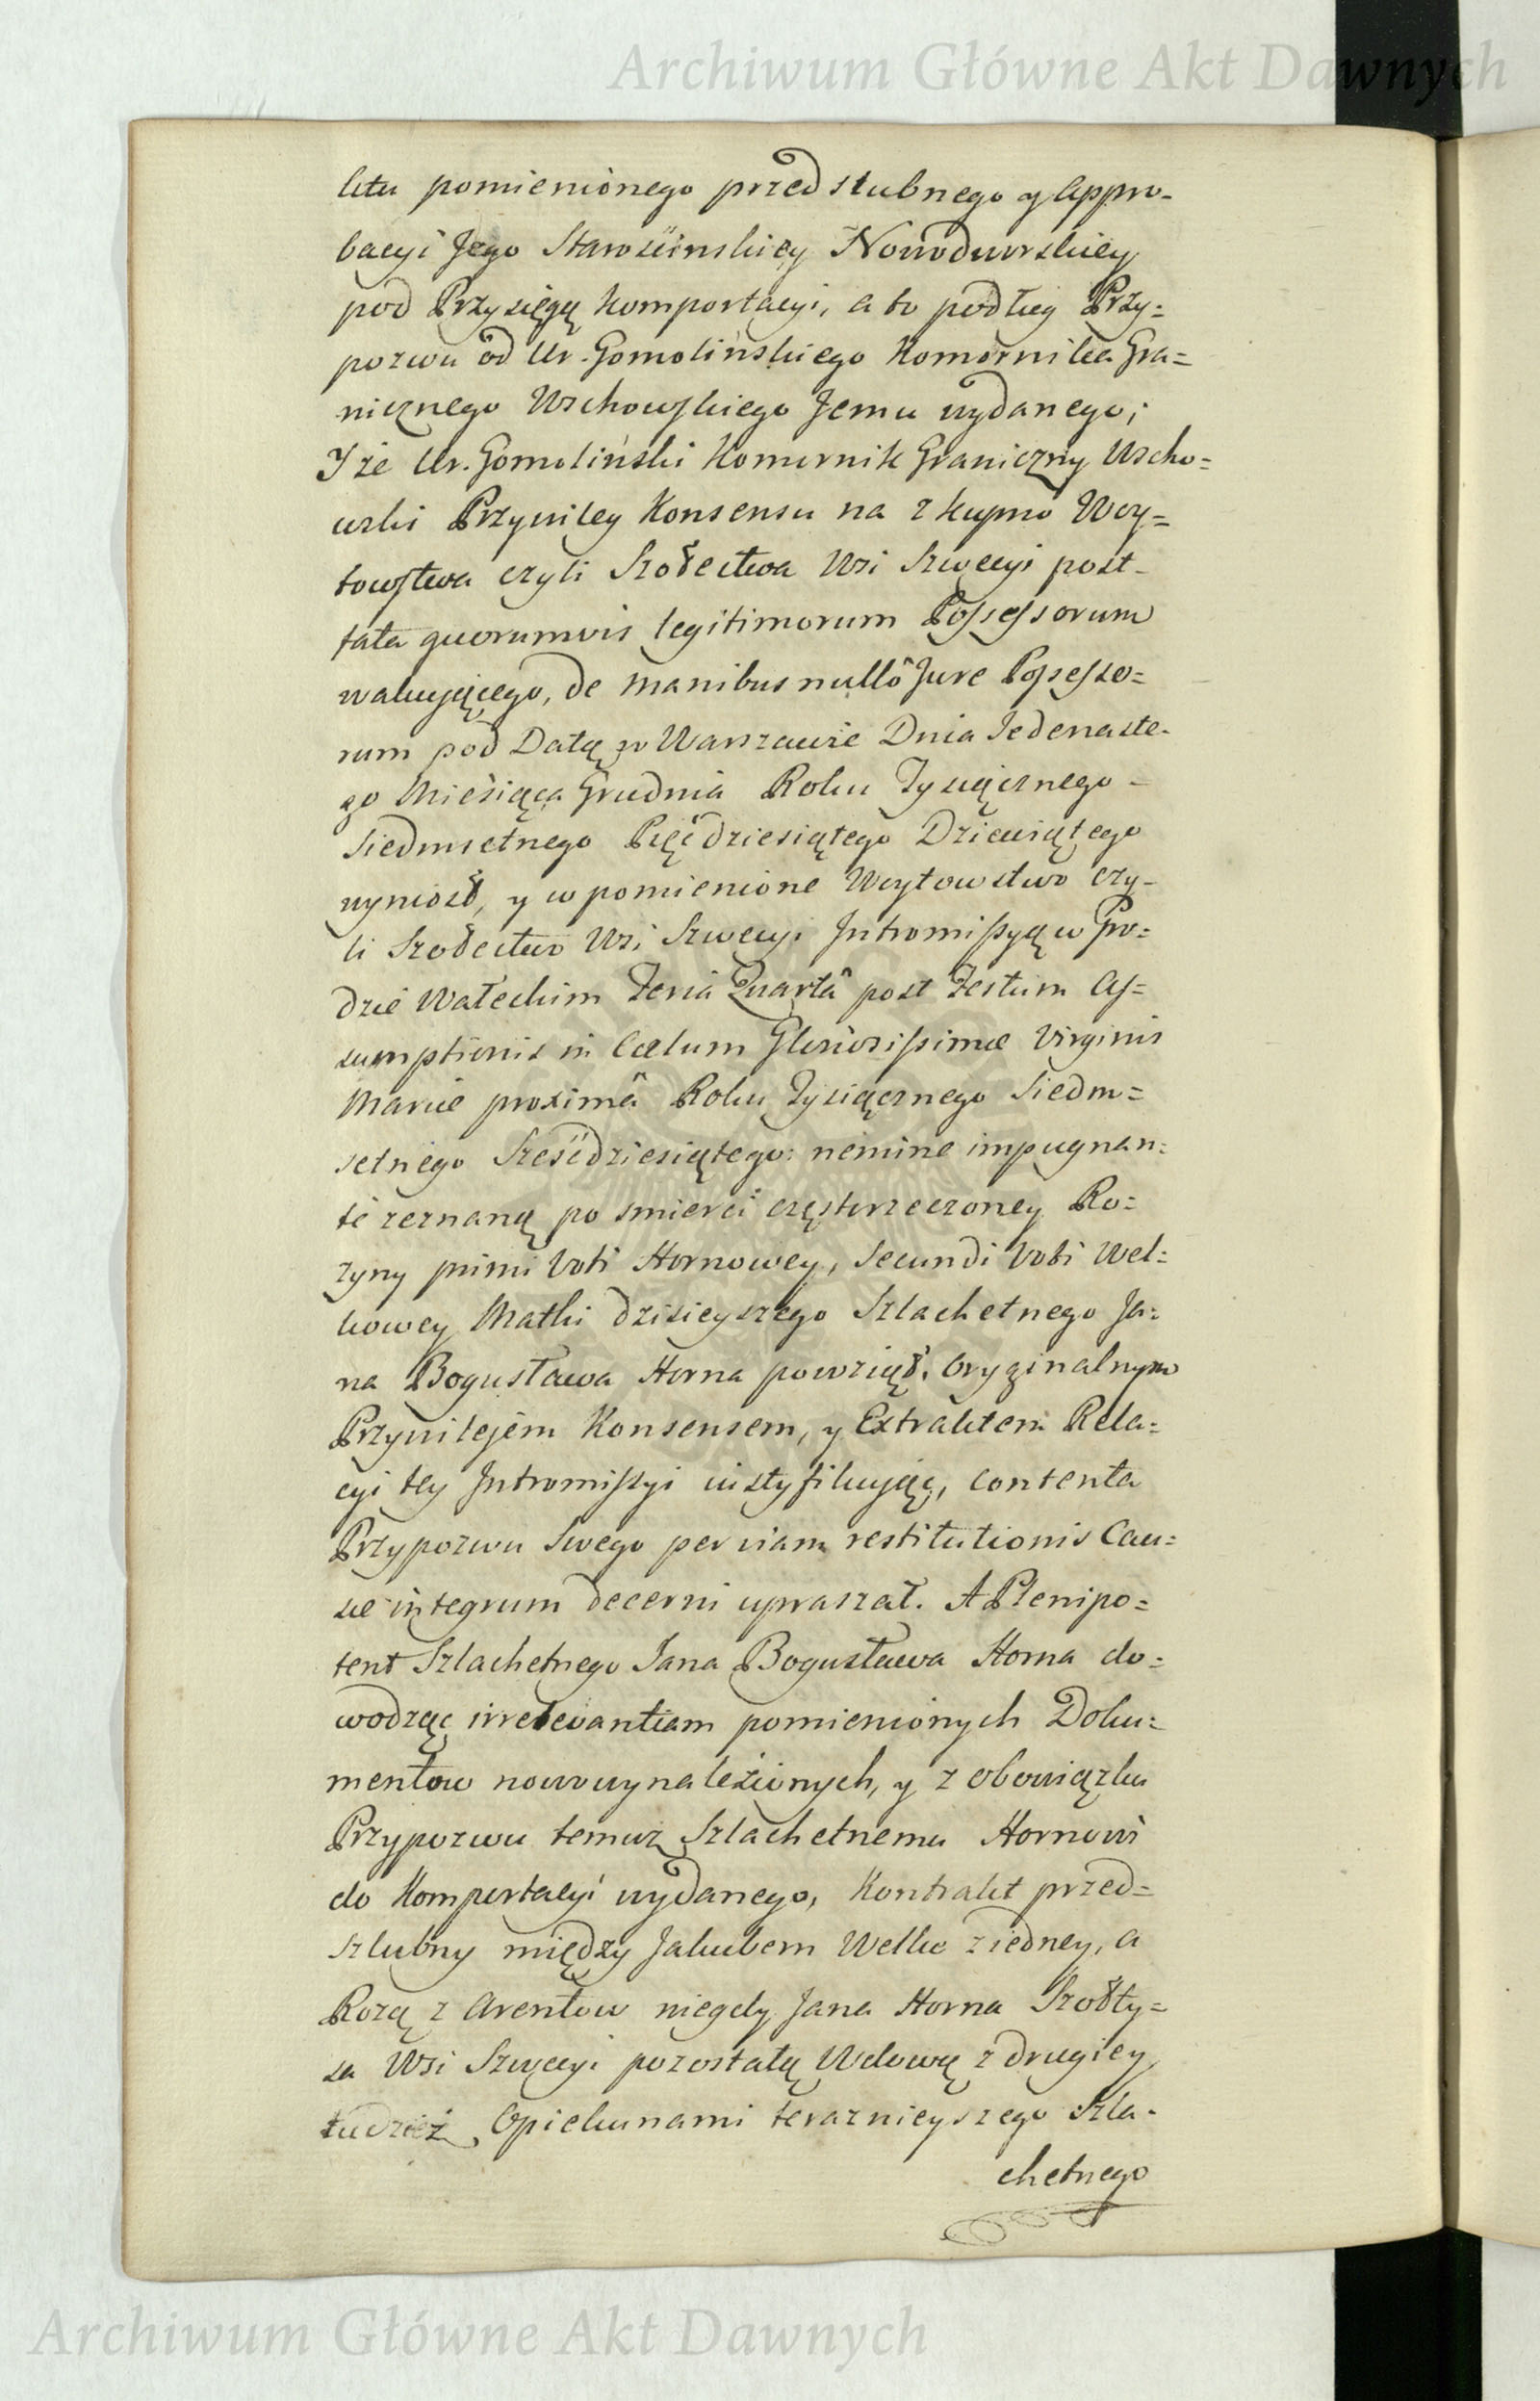 Archiwum Główne Akt Dawnych
ktu pomienionego przedslubnego y Appro-
bacyi Jego Starościnskiey Nowodworskiey
pod Przysięgą komportacyi, a to podług Przy=
pozwu od Ur. Gomolińskiego Komornika Gra=
nicznego Wschowskiego Jemu wydanego;
Iże Ur. Gomoliński Komornik Graniczny Wscho=
wski Przywiley Konsensu na zkupno Woy=
towstwa czyli Szołectwa Wsi Szwecyi post-
fata quorumvis legitimorum Possessorum
wakującego, de manibus nullô Jure Possesso=
rum pod Datą w Warszawie Dnia Jedenaste-
go Miesiąca Grudnia Roku Tysiącznego -
Siedmsetnego Pięćdziesiątego Dziewiątego
wyniosł, y w pomienione Woytowstwo czy-
li Szołectwo Wsi Szwecyi Intromissyą w Gro=
dzie Wałeckim Feria Quartâ post Festum As=
sumptionis in Cœlum Gloriosissimæ Virginis
Mariæ proximâ Roku Tysiącznego Siedm=
setnego Sześćdziesiątego: nemine impugnan=
te zeznaną po smierci częstorzeczoney Ro=
zyny primi Voti Hornowey, Secundi Voti Wel=
kowey Matki dzisieyszego Szlachetnego Ja=
na Bogusława Horna powziął, Oryginalnym
Przywilejem Konsensem, y Extraktem Rela=
cyi tey Intromissyi iustyfikując, contenta
Przypozwu Swego per viam restitutionis Cau=
sæ integrum decerni upraszał. A Plenipo=
tent Szlachetnego Jana Bogusława Horna do=
wodząc irrelevantiam pomienionych Doku=
mentow nowowynaleźionych, y z obowiązku
Przypozwu temuz Szlachetnemu Hornowi
do Komportacyi wydanego, Kontrakt przed=
szlubny między Jakubem Welke z iedney, a
Rozą z Arentow niegdy Jana Horna Szołty=
sa Wsi Szwecyi pozostałą Wdową z drugiey
tudzież Opiekunami teraznieyszego Szla-
chetnego
Archiwum Główne Akt Dawnych